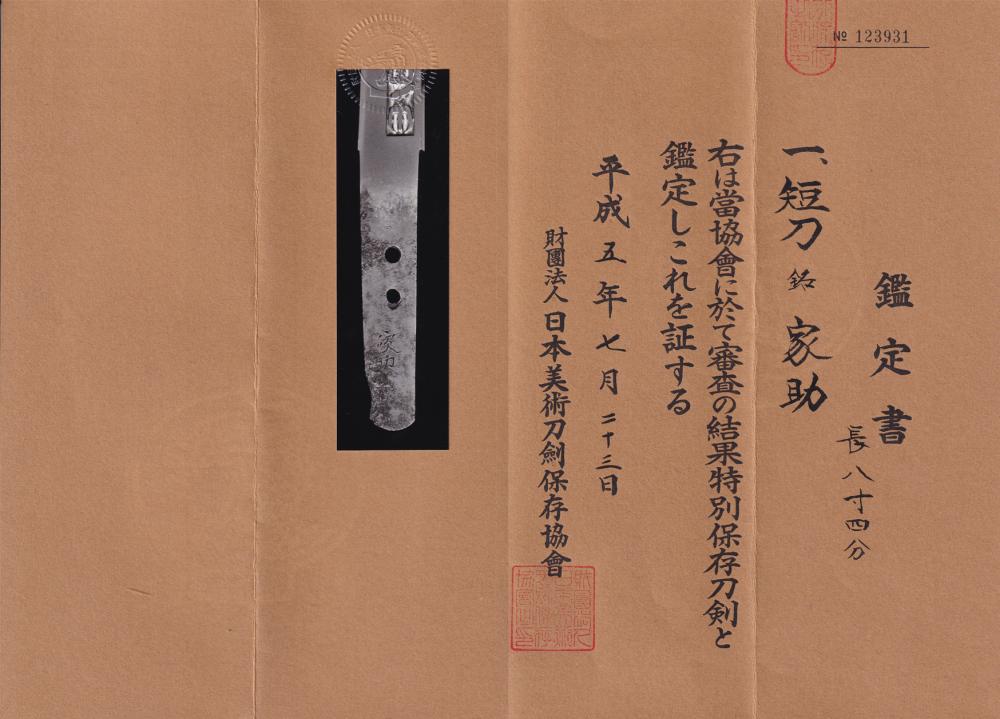 № 123931
鑑定書
長八寸四分
一、短刀 銘 家助
右は當協會に於て審査の結果特別保存刀剣と
鑑定しこれを証する
平成五年七月二十三日
財團法人日本美術刀劍保存協會
家助